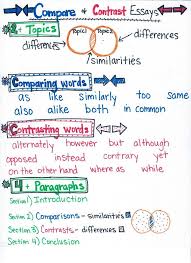 Compare & Contrast Essays
2+ Topics
Topic 1 Topic 2
differences
differences
similarities
Comparing words
as like similarly too same
also alike both in common
Contrasting words
alternately however but although
opposed instead contrary yet
on the other hand where as while
4+ Paragraphs
Section 1) Introduction
Section 2) Comparisons - similarities
Section 3) Contrasts - differences
Section 4) Conclusion